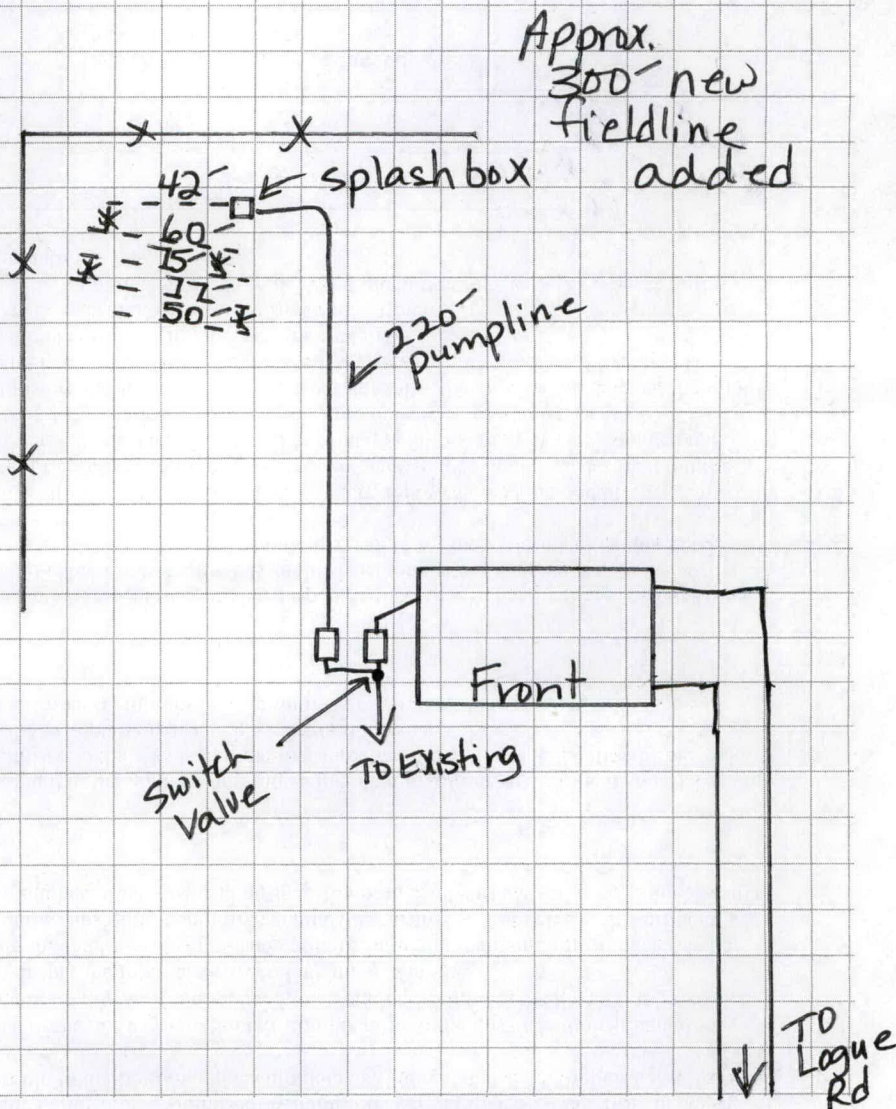 Approx.
300' new
fieldline
added
splash box
42'
60'
75'
77'
50'
220'
pumpline
Front
Switch
Valve
TO Existing
TO
Logue
Rd